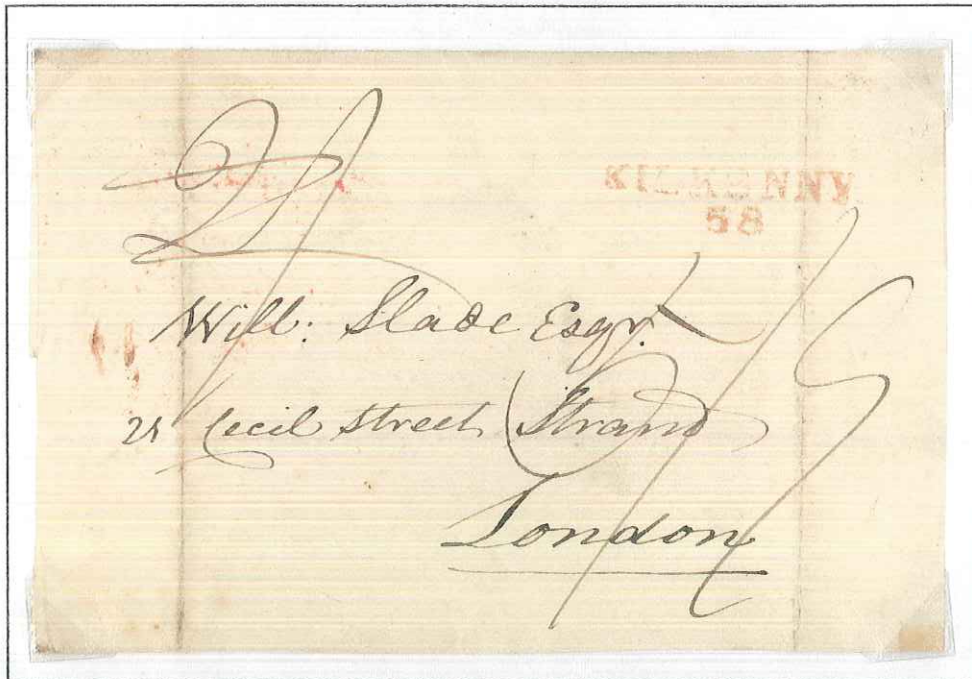 KILKENNY
58
Will: Slade Esqr.
Cecil Street Strand
London